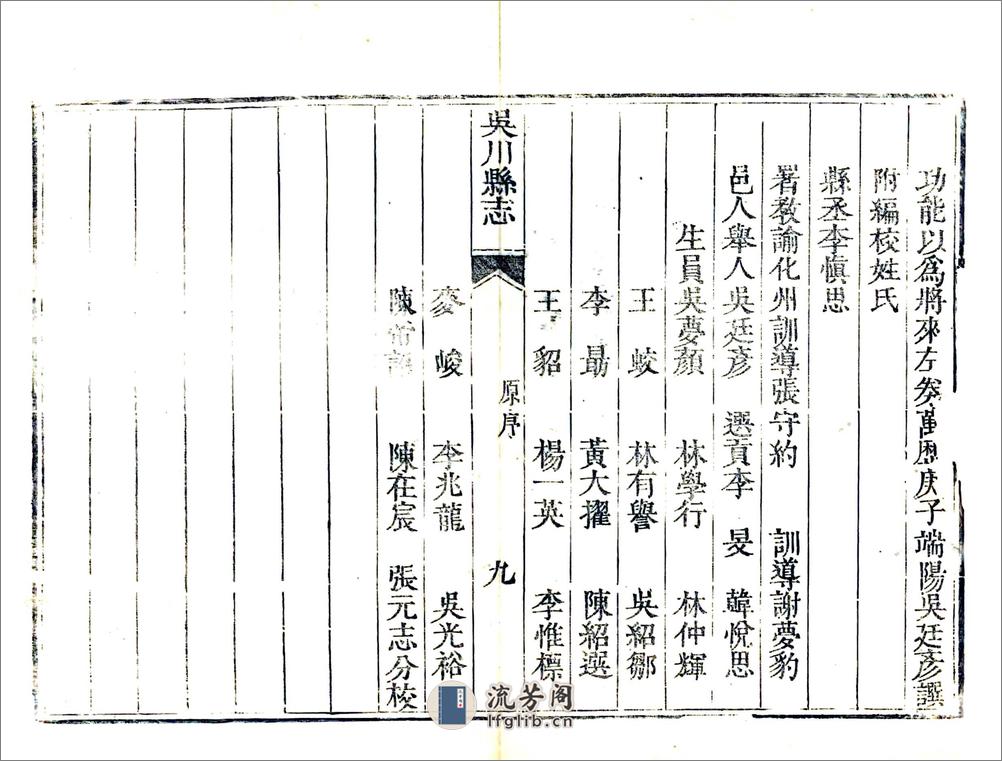 功能以爲將來左券萬歷庚子端陽吳廷彥譔
附編校姓氏
縣丞李愼思
署教諭化州訓導張守約 訓導謝夢豹
邑人舉人吳廷彥 選貢李旻 韓悅思
生員吳夢顏 林學行 林仲輝
王蛟 林有譽 吳紹鄒
李勗 黃大擢 陳紹選
王貂 楊一英 李惟標
吳川縣志 原序 九
麥峻 李兆龍 吳光裕
陳 陳在宸 張元志分校
流芳阁
lfglib.cn